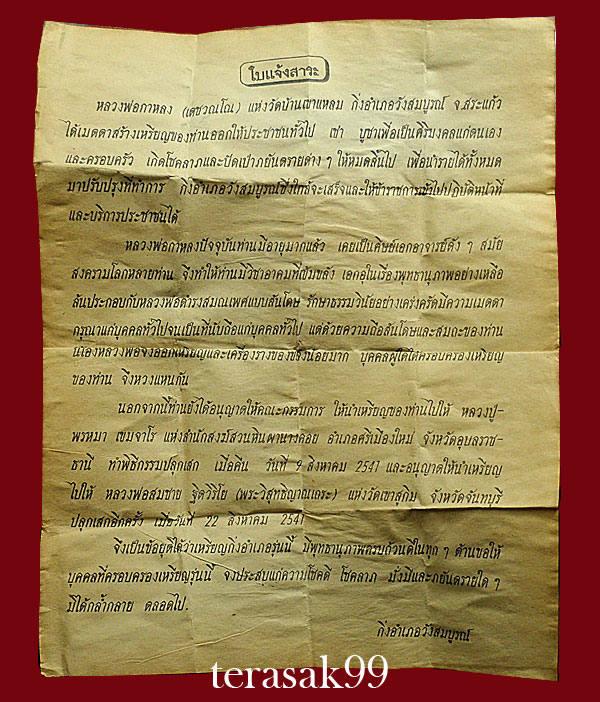 ใบแจ้งสาระ
หลวงพ่อกาหลง (เตชวณโณ) แห่งวัดบ้านเขาแหลม กิ่งอำเภอวังสมบูรณ์ จ.สระแก้ว
ได้เมตตาสร้างเหรียญของท่านออกให้ประชาชนทั่วไป เช่า บูชาเพื่อเป็นศิริมงคลแก่ตนเอง
และครอบครัว เกิดโชคลาภและปัดเป่าภยันตรายต่าง ๆ ให้หมดสิ้นไป เพื่อนำรายได้ทั้งหมด
มาปรับปรุงที่ทำการ กิ่งอำเภอวังสมบูรณ์ซึ่งใกล้จะเสร็จและให้ข้าราชการเข้าไปปฏิบัติหน้าที่
และบริการประชาชนได้
หลวงพ่อกาหลงปัจจุบันท่านมีอายุมากแล้ว เคยเป็นศิษย์เอกอาจารย์ดัง ๆ สมัย
สงครามโลกหลายท่าน จึงทำให้ท่านมีวิชาอาคมที่เข้มขลัง เอกอุในเรื่องพุทธานุภาพอย่างเหลือ
ล้นประกอบกับหลวงพ่อดำรงสมณเพศแบบสันโดษ รักษาธรรมวินัยอย่างเคร่งครัดมีความเมตตา
กรุณาแก่บุคคลทั่วไปจนเป็นที่นับถือแก่บุคคลทั่วไป แต่ด้วยความถือสันโดษและสมถะของท่าน
นี่เองหลวงพ่อจึงออกเหรียญและเครื่องรางของขลังน้อยมาก บุคคลผู้ใดได้ครอบครองเหรียญ
ของท่าน จึงหวงแหนกัน
นอกจากนี้ท่านยังได้อนุญาตให้คณะกรรมการ ให้นำเหรียญของท่านไปให้ หลวงปู่-
พรหมา เขมจาโร แห่งสำนักสงฆ์สวนหินผานางคอย อำเภอศรีเมืองใหม่ จังหวัดอุบลราช-
ธานี ทำพิธีกรรมปลุกเสก เมื่อคืน วันที่ 9 สิงหาคม 2541 และอนุญาตให้นำเหรียญ
ไปให้ หลวงพ่อสมชาย ฐิตวิริโย (พระวิสุทธิญาณเถระ) แห่งวัดเขาสุกิม จังหวัดจันทบุรี
ปลุกเสกอีกครั้ง เมื่อวันที่ 22 สิงหาคม 2541
จึงเป็นข้อยุติได้ว่าเหรียญกิ่งอำเภอรุ่นนี้ มีพุทธานุภาพครบถ้วนดีในทุก ๆ ด้านขอให้
บุคคลที่ครอบครองเหรียญรุ่นนี้ จงประสบแก่ความโชคดี โชคลาภ มั่งมีและภยันตรายใด ๆ
มิได้กล้ำกลาย ตลอดไป.
กิ่งอำเภอวังสมบูรณ์
terasak99